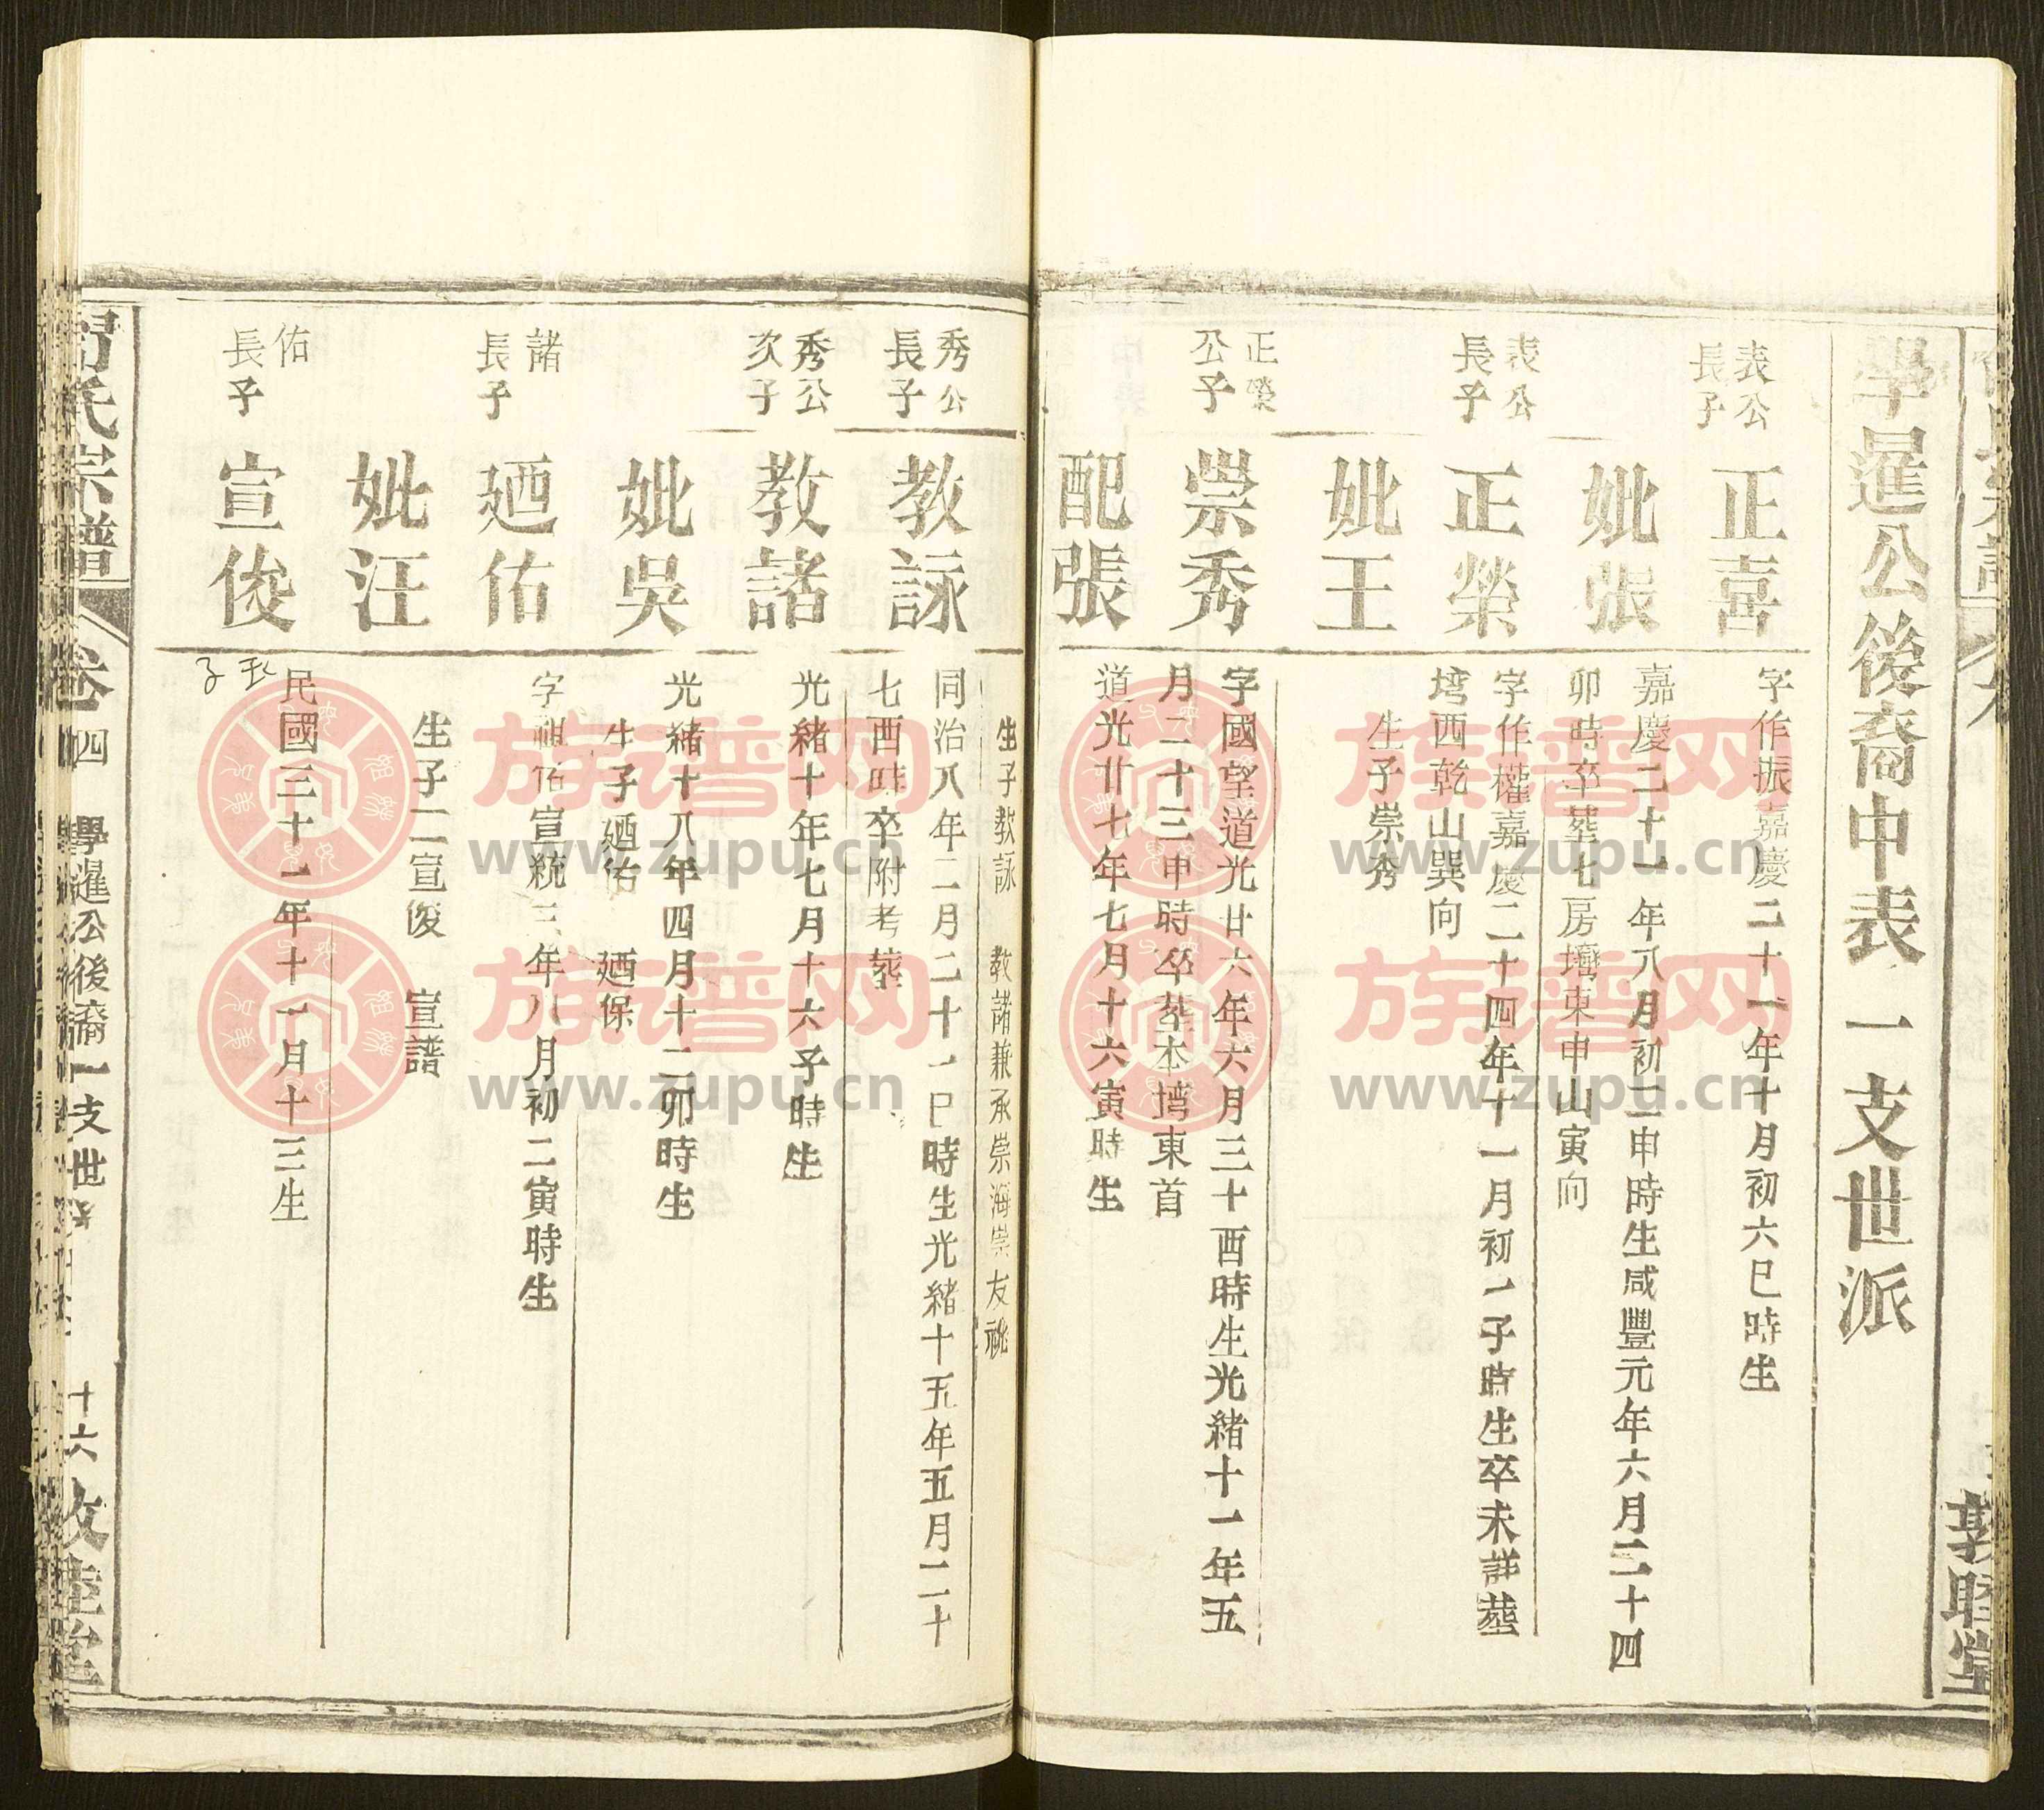 敦睦堂
學暹公後裔中表一支世派
表公
長子
正喜
字作振嘉慶二十一年十月初六巳時生
妣張
嘉慶二十一年八月初二申時生咸豐元年六月二十四
卯時卒葬七房塆東申山寅向
表公
長子
正榮
字作權嘉慶二十四年十一月初一子時生卒未詳塟
塆西乾山巽向
妣王
生子崇秀
正榮
公子
崇秀
字國望道光廿六年六月三十酉時生光緒十一年五
月二十三申時卒塟本塆東首
配張
道光廿七年七月十六寅時生
生子教詠 教諸兼承崇海崇友祧
秀公
長子
教詠
同治八年二月二十一巳時生光緒十五年五月二十
七酉時卒附考塟
秀公
次子
教諸
光緒十年七月十六子時生
妣吳
光緒十八年四月十二卯時生
生子廼佑 廼保
諸
長子
廼佑
字祖佑宣統三年八月初二寅時生
妣汪
生子二宣俊 宣譜
佑
長子
宣俊
民國三十一年十一月十三生
子
氏宗譜
卷四
學暹公後裔一支世
十六
族谱网
www.zupu.cn
族谱网
www.zupu.cn
族谱网
www.zupu.cn
族谱网
www.zupu.cn